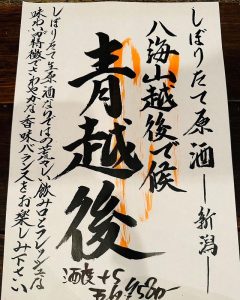 しぼりたて原酒ー新潟ー
八海山越後で候
青越後
しぼりたて生原酒ならではの荒々しい飲み口とフレッシュな
味わいが特徴でさわやかな香味バランスをお楽しみ下さい
酒度+5